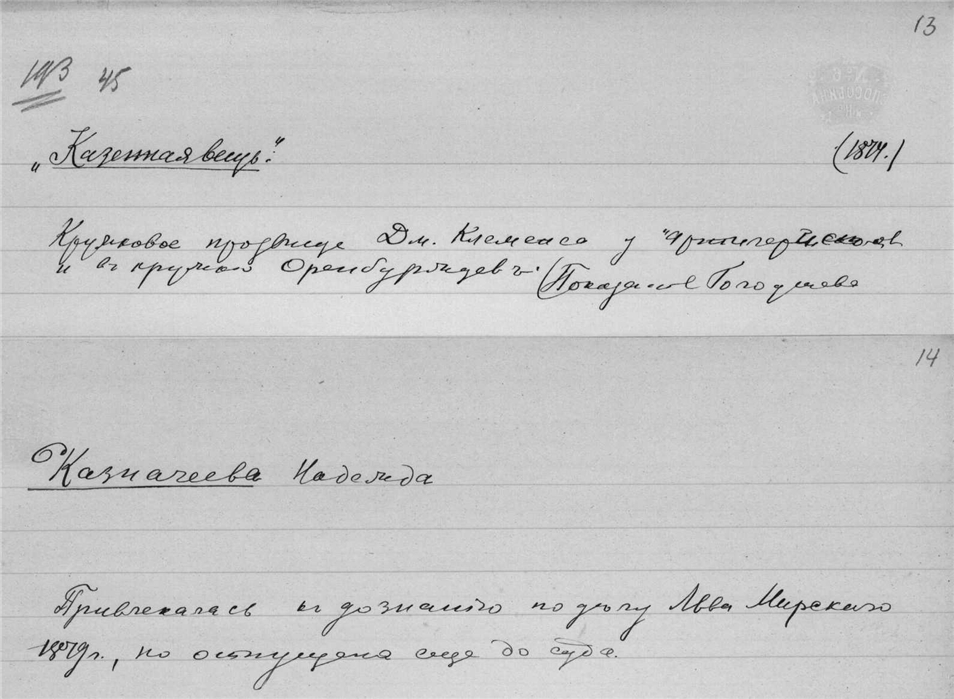 13
193 45
„Казенная вещь".
(1874.)
Кружковое прозвище Дм. Клеменса у "Артиллеристов
и въ кружкѣ Оренбуржцевъ. (Показаніе Гогоушева
14
Казначеева Надежда
Привлекалась къ дознанію по дѣлу Льва Мирскаго
1879 г., но отпущена еще до суда.